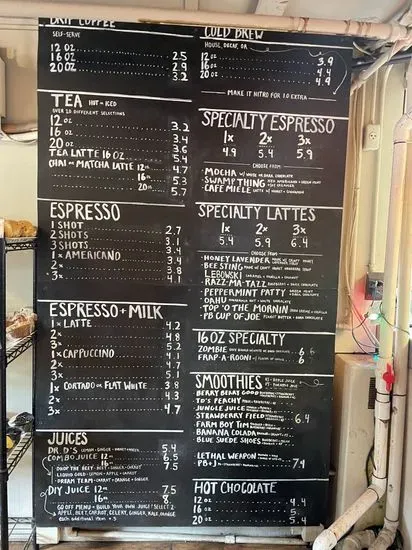 DRIP COFFEE
SELF-SERVE
12 OZ 2.5
16 OZ 2.9
20 OZ 3.2
TEA HOT OR ICED
OVER 20 DIFFERENT SELECTIONS
12 OZ 3.2
16 OZ 3.4
20 OZ 3.6
TEA LATTE 16 OZ 5.4
CHAI OR MATCHA LATTE 12oz 4.7
16oz 5.3
20oz 5.7
ESPRESSO
1 SHOT 2.7
2 SHOTS 3.1
3 SHOTS 3.4
1x AMERICANO 3.4
2x 3.8
3x 4.1
ESPRESSO + MILK
1x LATTE 4.2
2x 4.8
3x 5.2
1x CAPPUCCINO 4.1
2x 4.7
3x 5.1
1x CORTADO OR FLAT WHITE 3.8
2x 4.3
3x 4.7
JUICES
DR. D'S LEMON + GINGER 5.4
COMBO JUICE 12oz 6.5
16oz 7.5
DROP THE BEET - BEET + GINGER + CARROT
LIQUID GOLD - LEMON + APPLE + CARROT
DREAM TEAM - CARROT + ORANGE + GINGER
DIY JUICE 12oz 7.5
16oz 8.
GO OFF MENU + BUILD YOUR OWN JUICE! SELECT 2:
APPLE, BEET, CARROT, CELERY, GINGER, KALE, ORANGE
each additional item + .5
COLD BREW
HOUSE, DECAF, OR
12 OZ 3.9
16 OZ 4.4
20 OZ 4.9
MAKE IT NITRO FOR 1.0 EXTRA
SPECIALTY ESPRESSO
1x 2x 3x
4.9 5.4 5.9
CHOOSE FROM
MOCHA W/ WHITE OR DARK CHOCOLATE
SWAMP THING
CAFE MIELE W/ HONEY + CINNAMON
SPECIALTY LATTES
1x 2x 3x
5.4 5.9 6.4
CHOOSE FROM
HONEY LAVENDER
BEE STING
LEBOWSKI
RAZZ-MA-TAZZ
PEPPERMINT PATTY
OAHU
TOP 'O THE MORNIN
PB CUP OF JOE PEANUT BUTTER + DARK CHOCOLATE
16 OZ SPECIALTY
ZOMBIE 6
FRAP-A-ROONI 6
SMOOTHIES
BERRY BERRY GOOD
TO'S PEACHY
JUNGLE JUICE
STRAWBERRY FIELD 6.4
FARM BOY TIM
BANANA COLADA
BLUE SUEDE SHOES
LETHAL WEAPON
PB+J 7.4
HOT CHOCOLATE
12 OZ 4.4
16 OZ 5.
20 OZ 5.